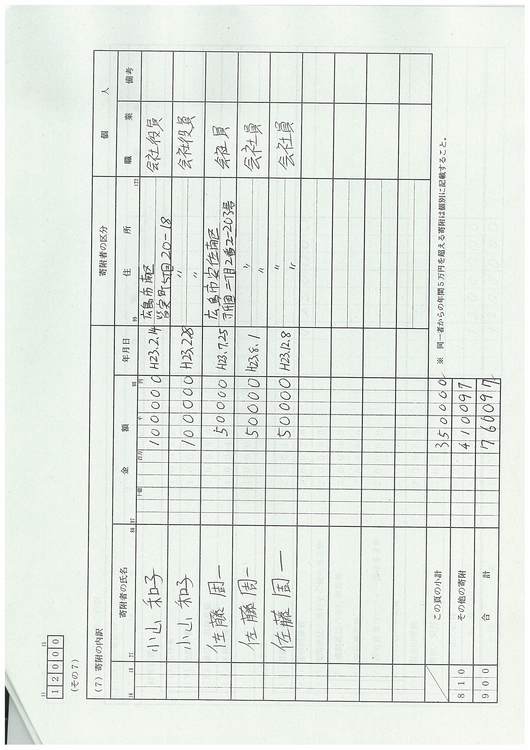 12000
(その7)
(7) 寄附の内訳
寄附者の氏名 金 額 年月日 寄附者の区分 個 人
住 所 職 業 備考
小山 和子 100000 H23.2.14 広島市南区 会社役員
小山 和子 100000 H23.2.28 〃 〃 会社役員
佐藤 周一 50000 H23.7.25 広島市安佐南区 会社員
佐藤 周一 50000 H23.8.1 〃 〃 会社員
佐藤 周一 50000 H23.12.8 〃 〃 会社員
この頁の小計 350000
810 その他の寄附 410097
900 合 計 760097
※ 同一者からの年間5万円を超える寄附は個別に記載すること。